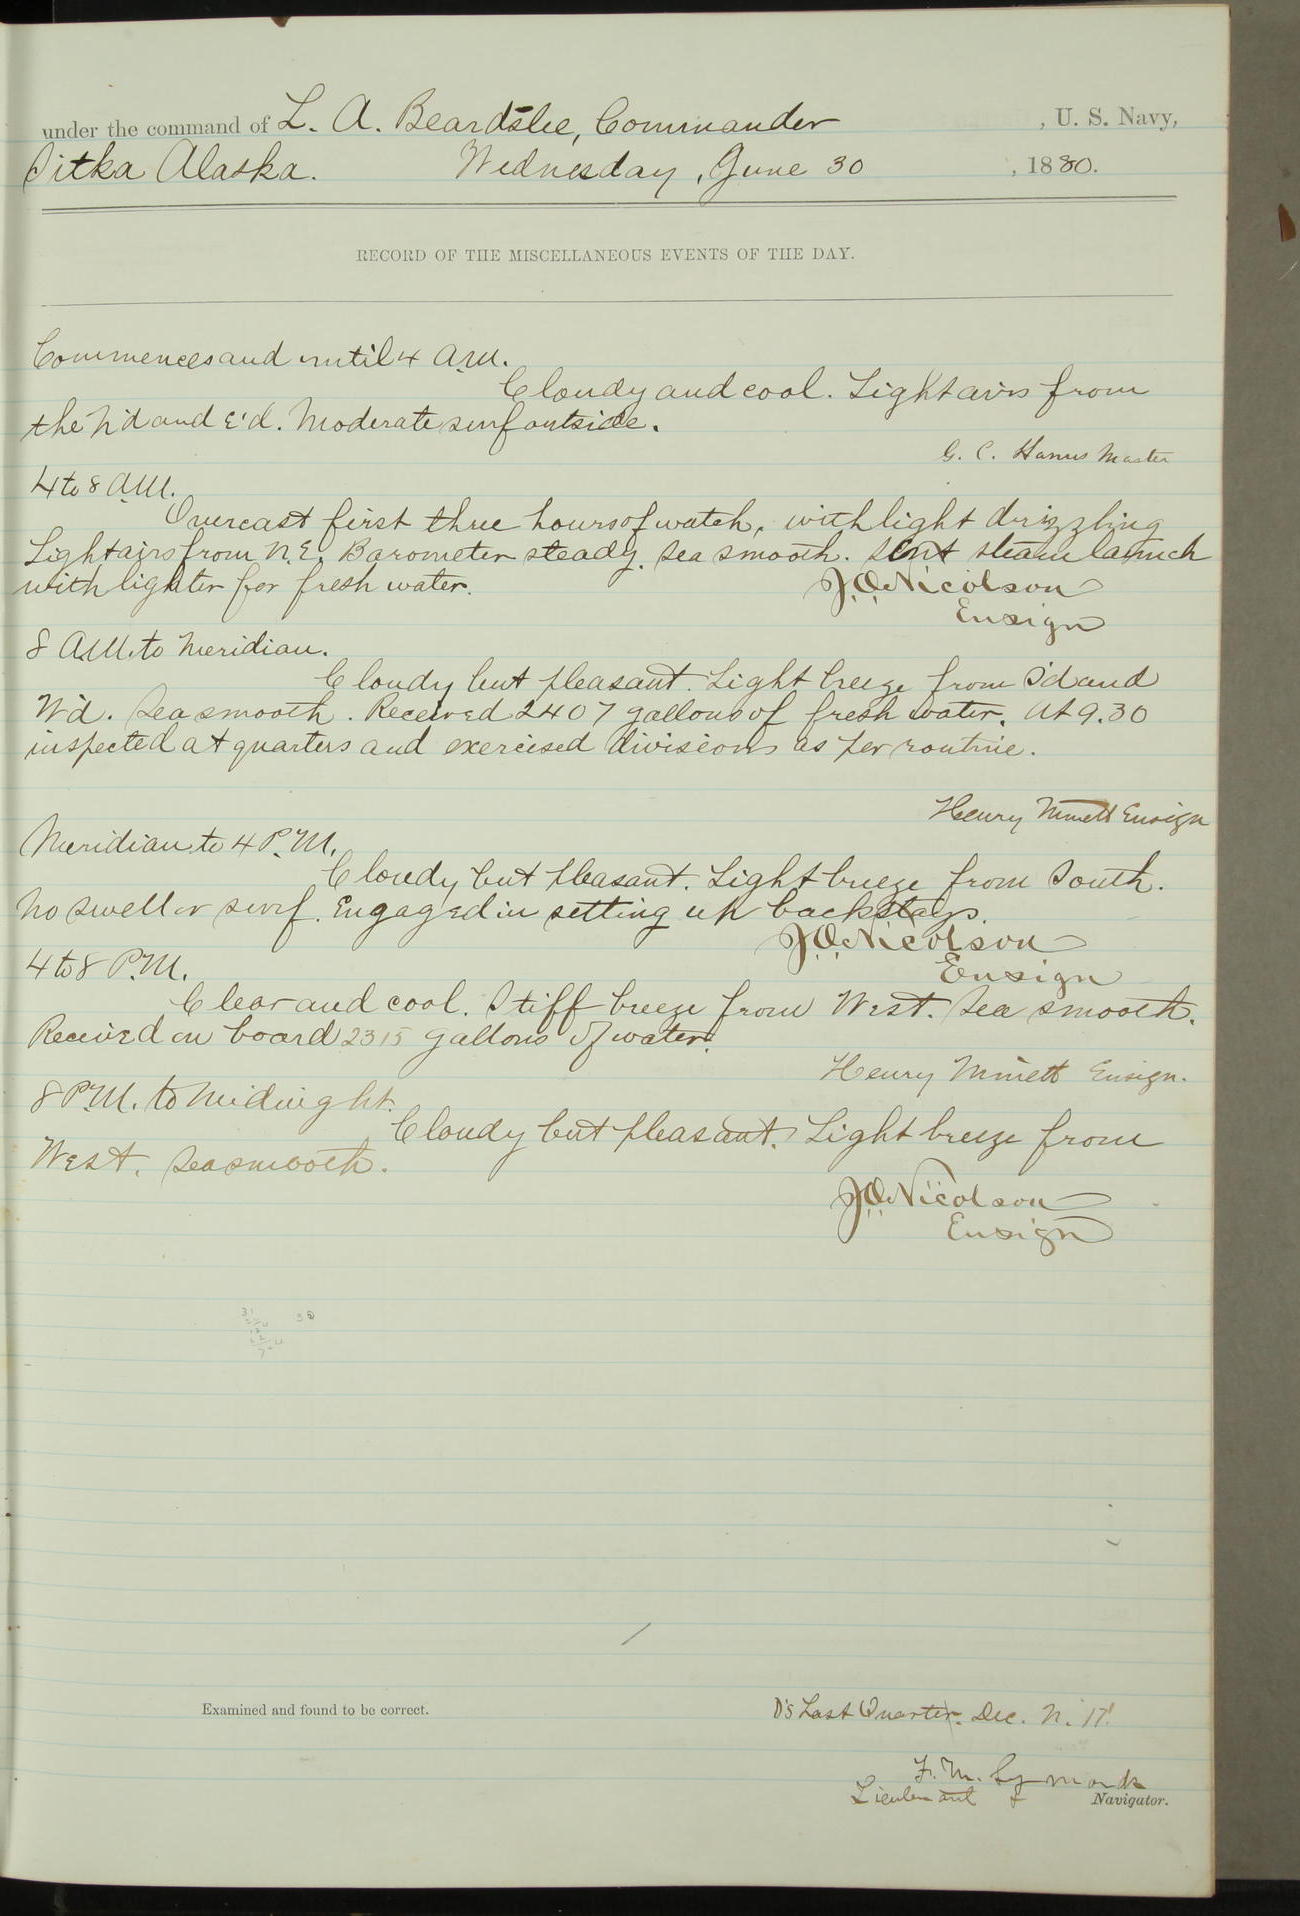 under the command of L. A. Beardslee, Commander , U. S. Navy,
Sitka Alaska. Wednesday, June 30 , 1880.
RECORD OF THE MISCELLANEOUS EVENTS OF THE DAY.
Commences and until 4 A.M.
Cloudy and cool. Light airs from
the N'd and E'd. Moderate surf outside.
G. C. Hanus Master
4 to 8 A.M.
Overcast first three hours of watch, with light drizzling
Light airs from N.E. Barometer steady. Sea smooth. Sent steam launch
with lighter for fresh water.
J.O. Nicolson
Ensign
8 A.M. to Meridian.
Cloudy but pleasant. Light breeze from S'd and
W'd. Sea smooth. Received 2407 gallons of fresh water. At 9.30
inspected at quarters and exercised divisions as per routine.
Henry Minett Ensign
Meridian to 4 P.M.
Cloudy but pleasant. Light breeze from South.
No swell or surf. Engaged in setting up backstays.
J.O. Nicolson
Ensign
4 to 8 P.M.
Clear and cool. Stiff breeze from West. Sea smooth.
Received on board 2315 gallons of water.
Henry Minett Ensign.
8 P.M. to Midnight.
Cloudy but pleasant. Light breeze from
West. Sea smooth.
J.O. Nicolson
Ensign
30
Examined and found to be correct.
D's Last Quarter. Dec. N. 17'
F. M. Symonds
Lieutenant & Navigator.